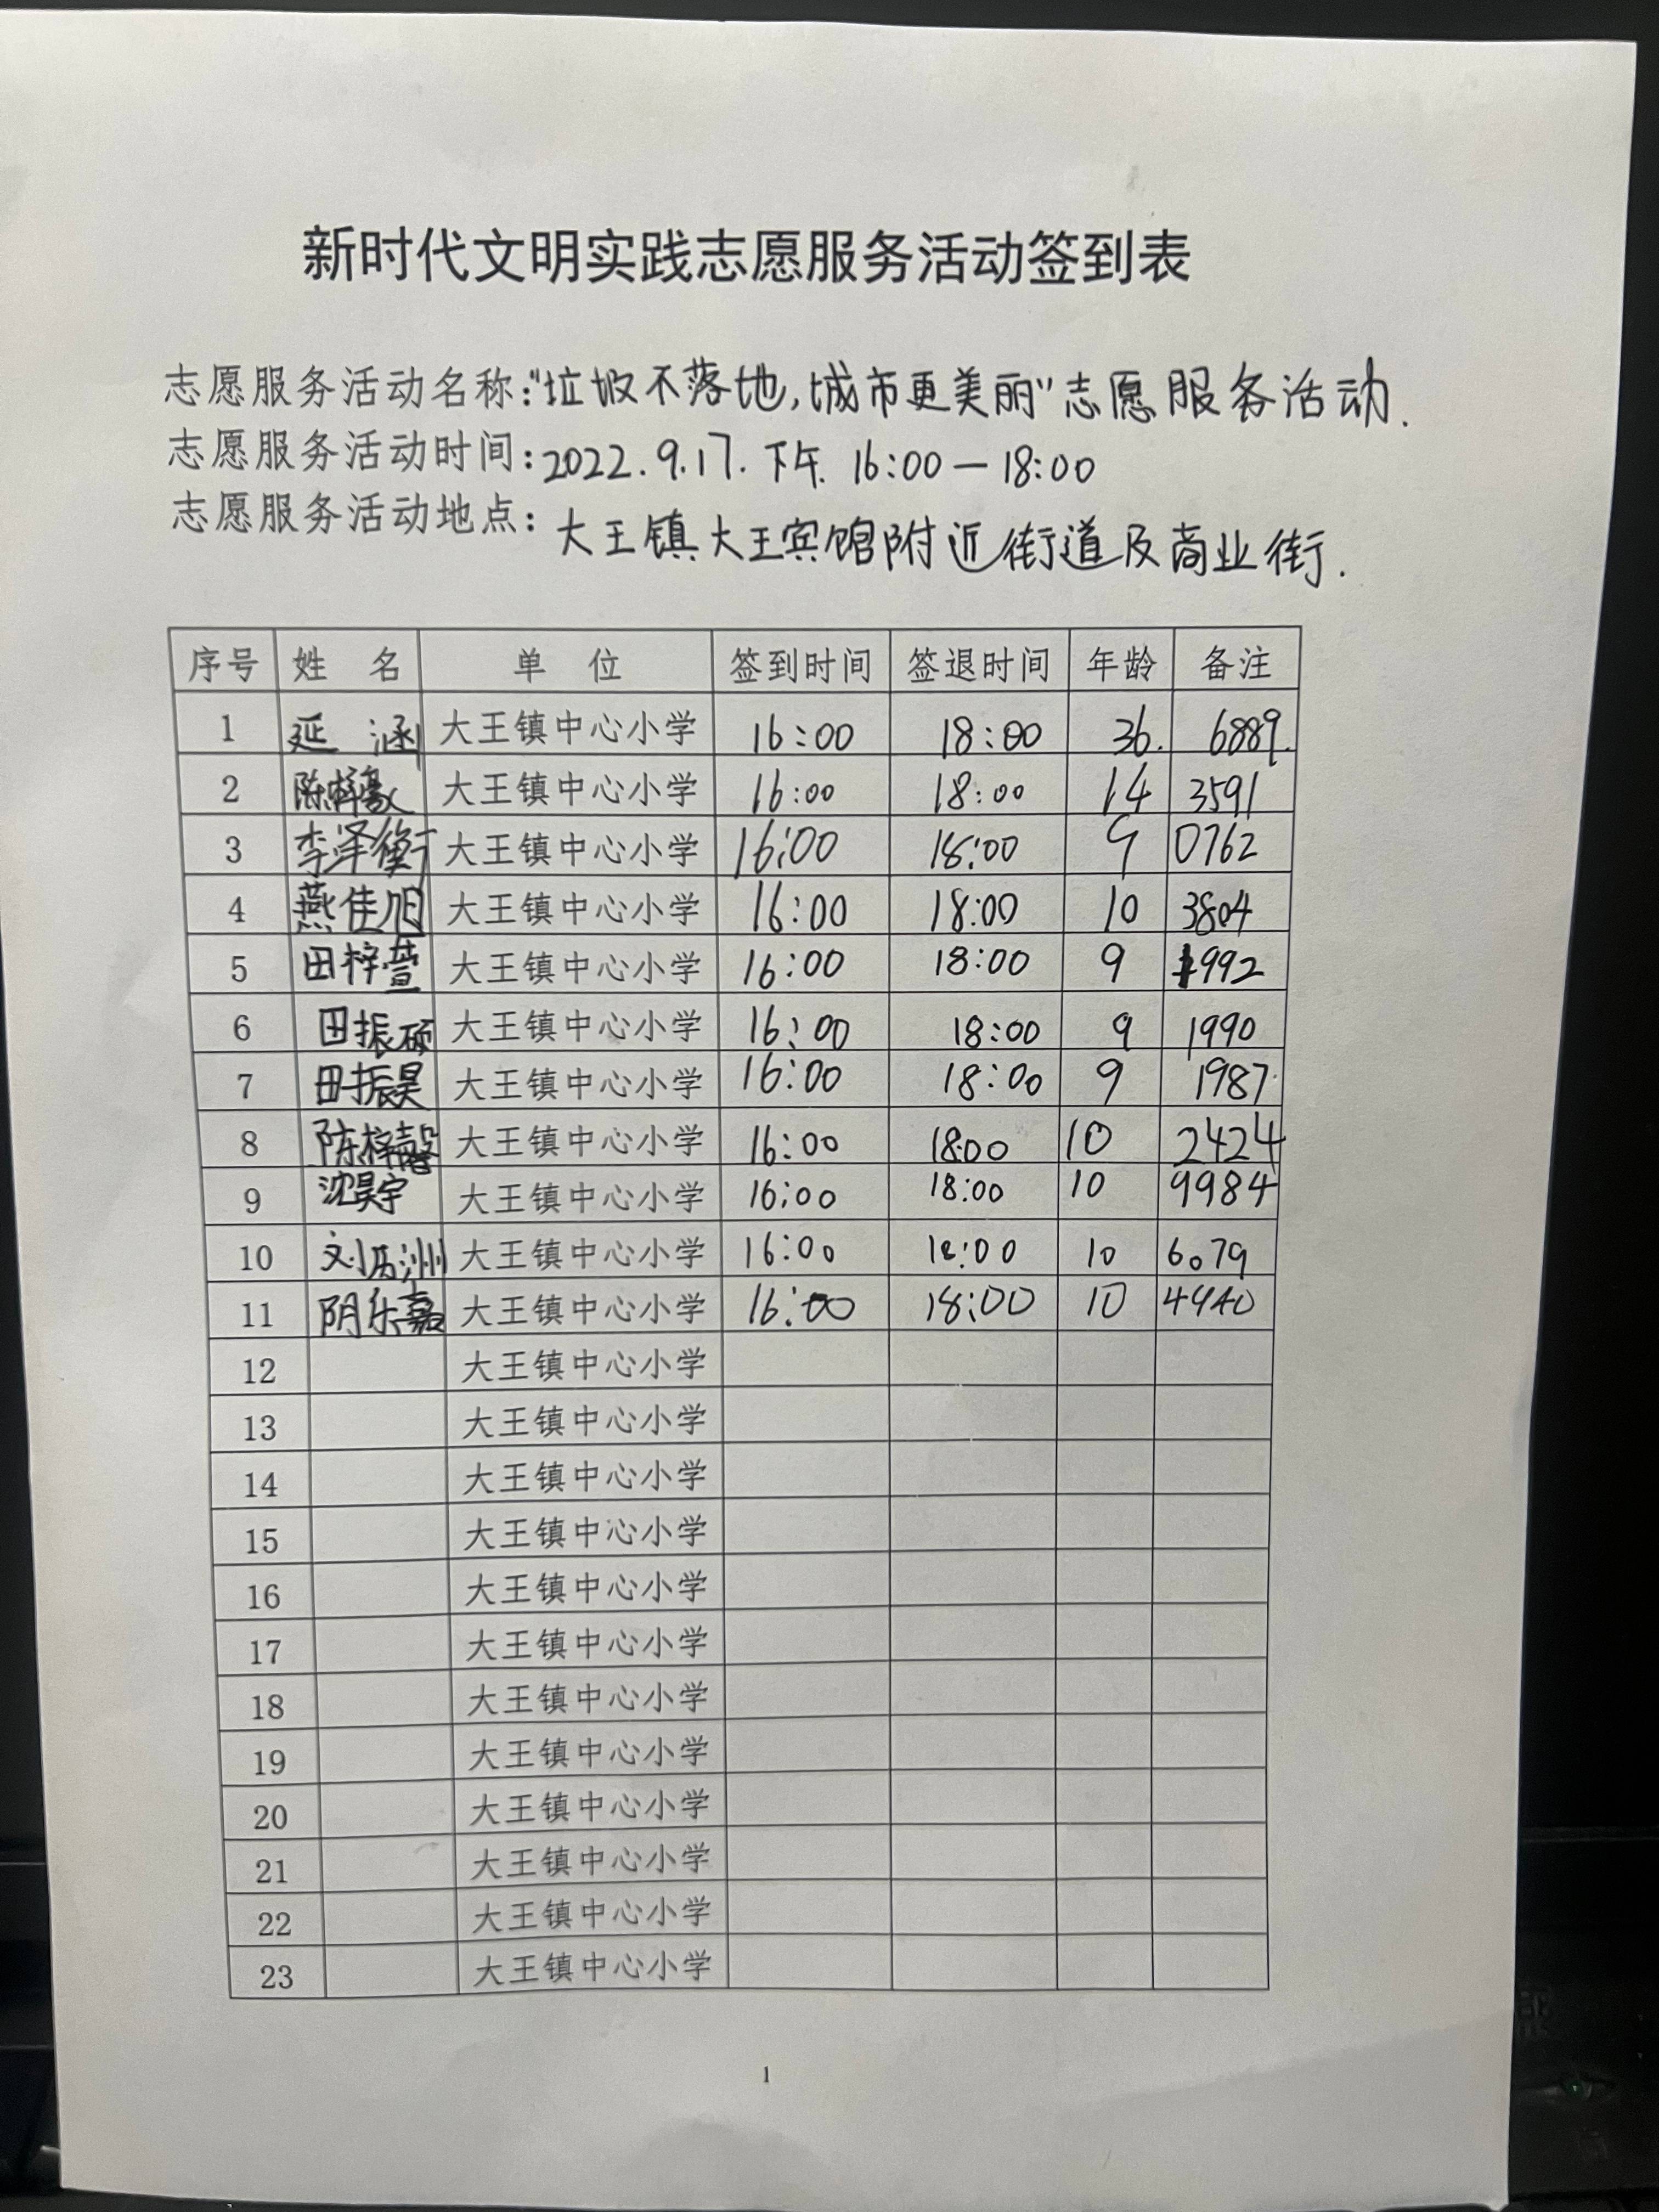 新时代文明实践志愿服务活动签到表
志愿服务活动名称:“垃圾不落地,城市更美丽”志愿服务活动.
志愿服务活动时间:2022.9.17.下午.16:00—18:00
志愿服务活动地点:大王镇大王宾馆附近街道及商业街.
序号 姓 名 单 位 签到时间 签退时间 年龄 备注
1 延 涵 大王镇中心小学 16:00 18:00 36. 6889.
2 陈梓豪 大王镇中心小学 16:00 18:00 14 3591
3 李泽衡 大王镇中心小学 16:00 18:00 9 0762
4 燕佳旭 大王镇中心小学 16:00 18:00 10 3804
5 田梓萱 大王镇中心小学 16:00 18:00 9 1992
6 田振硕 大王镇中心小学 16:00 18:00 9 1990
7 田振昊 大王镇中心小学 16:00 18:00 9 1987
8 陈梓馨 大王镇中心小学 16:00 18:00 10 2424
9 沈昊宇 大王镇中心小学 16:00 18:00 10 9984
10 大王镇中心小学 16:00 18:00 10 6079
11 阴乐嘉 大王镇中心小学 16:00 18:00 10 4940
12 大王镇中心小学
13 大王镇中心小学
14 大王镇中心小学
15 大王镇中心小学
16 大王镇中心小学
17 大王镇中心小学
18 大王镇中心小学
19 大王镇中心小学
20 大王镇中心小学
21 大王镇中心小学
22 大王镇中心小学
23 大王镇中心小学
1